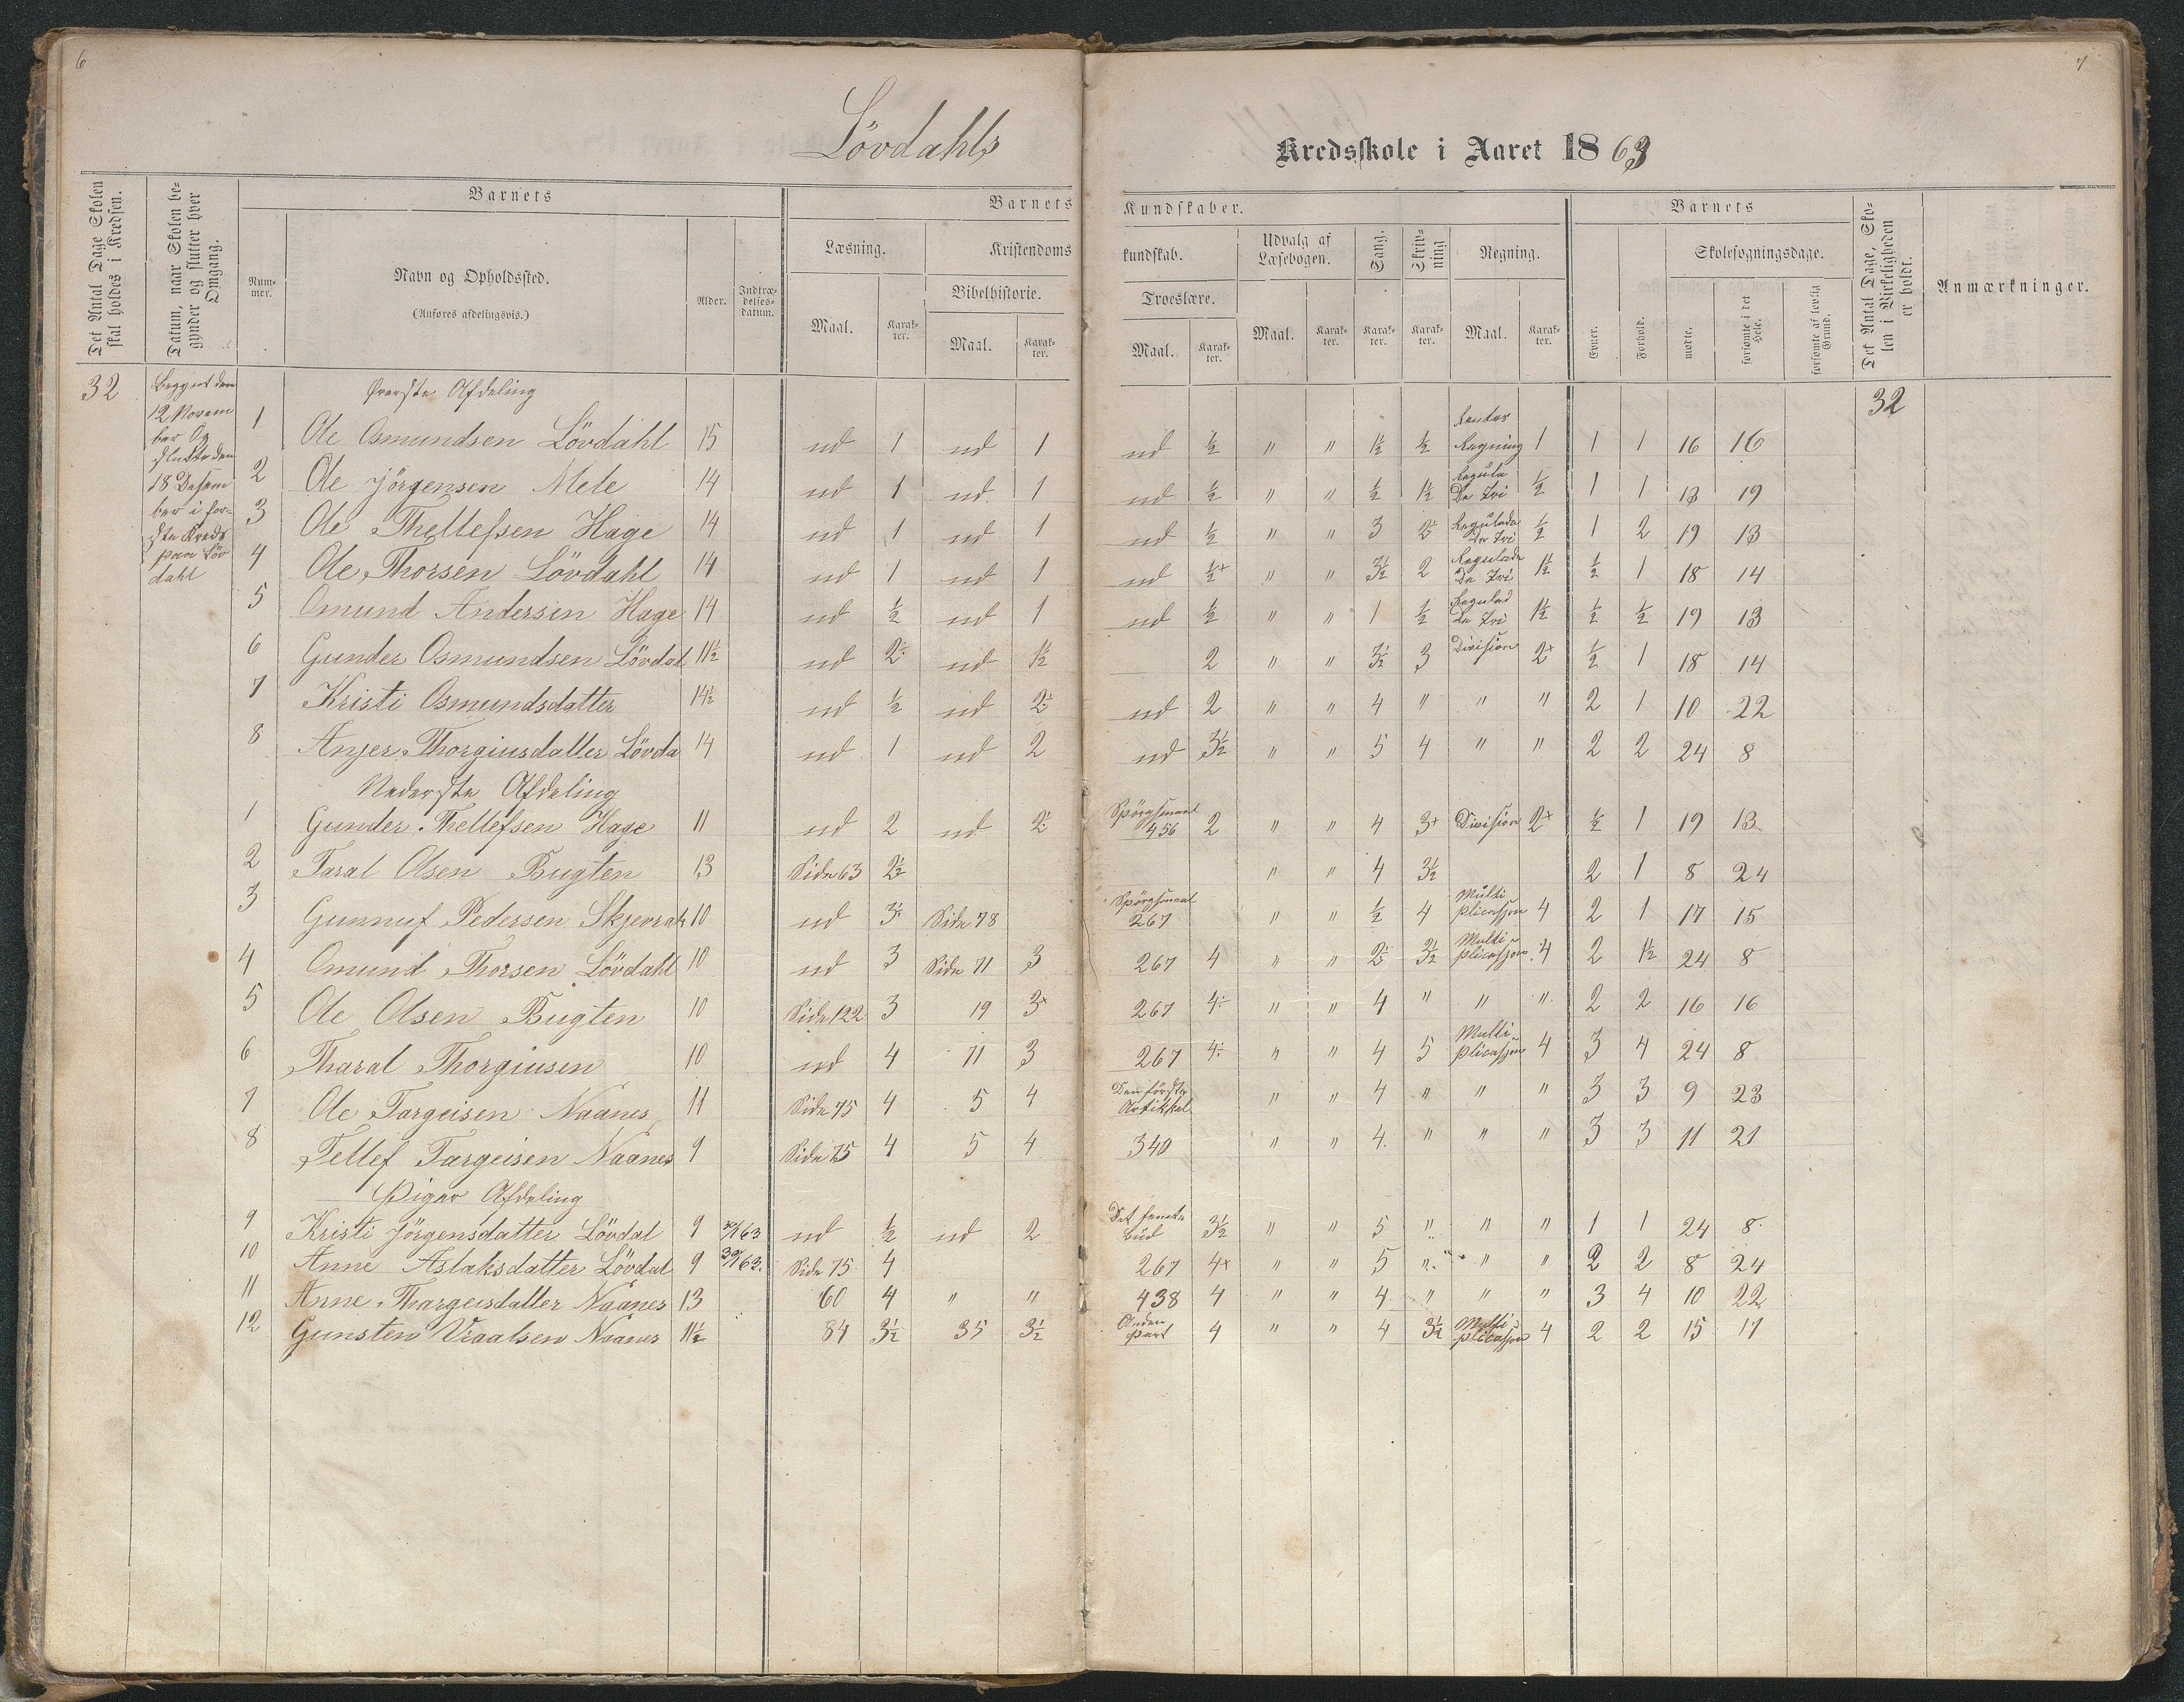 6
7
Lövdahls Kredsskole i Aaret 1863
Det Antal Dage Skolen skal holdes i Kredsen.
Datum, naar Skolen begynder og slutter hver Omgang.
Barnets
Nummer.
Navn og Opholdssted.
(Anføres afdelingsvis.)
Alder.
Indtrædelsesdatum.
Barnets Kundskaber.
Læsning.
Maal.
Karakter.
Kristendomskundskab.
Bibelhistorie.
Maal.
Karakter.
Troeslære.
Maal.
Karakter.
Udvalg af Læsebogen.
Maal.
Karakter.
Sang.
Karakter.
Skrivning
Karakter.
Regning.
Maal.
Karakter.
Barnets
Evner.
Forhold.
Skolesøgningsdage.
mødte.
forsømte i det Hele.
forsømte af lovlig Grund.
Det Antal Dage, Skolen i Virkeligheden er holdt.
Anmærkninger.
32
Beggynt den
12 Novem
ber Og
Slutte den
18 Desem
ber i for-
ste Kreds
paa Löv
dahl
32
Øverste Afdeling
1 Ole Osmundsen Lövdahl 15 ud 1 ud 1 ud ½ " " 1½ ½ Rentes Regning 1 1 1 16 16
2 Ole Jörgensen Mele 14 ud 1 ud 1 ud ½ " " ½ 1½ Regula De Tri ½ 1 1 13 19
3 Ole Thellefsen Hage 14 ud 1 ud 1 ud ½ " " 3 2 Regulada De Tri ½ 1 2 19 13
4 Ole Thorsen Lövdahl 14 ud 1 ud 1 ud ½+ " " 3½ 2 Regulada De Tri 1½ ½ 1 18 14
5 Omund Andersen Hage 14 ud ½ ud 1 ud ½ " " 1 ½ Regulad De Tri 1½ ½ ½ 19 13
6 Gunder Osmundsen Lövdal 11½ ud 2 ud 1½ 2 " " 3½ 3 Division 2+ ½ 1 18 14
7 Kristi Osmundsdatter 14½ ud ½ ud 2½ ud 2 " " 4 " " " 2 1 10 22
8 Anjer Thorgiusdatter Lövda 14 ud 1 ud 2 ud 3½ " " 5 4 " " 2 2 24 8
Nederste Afdeling
1 Gunder Thellefsen Hage 11 ud 2 ud 2 Spörgsmaal 456 2 " " 4 3+ Division 2+ ½ 1 19 13
2 Taral Olsen Bugten 13 Side 63 2½ " " 4 3½ 2 1 8 24
3 Gunnuf Pedersen Skjevrak 10 ud 3 Side 78 Spörgsmaal 267 " " ½ 4 Multi plicasjon 4 2 1 17 15
4 Omund Thorsen Lövdahl 10 ud 3 Side 71 3 267 4 " " 2 3½ Multi plicasjon 4 2 1½ 24 8
5 Ole Olsen Bugten 10 Side 122 3 19 3+ 267 4 " " 4 " " " 2 2 16 16
6 Tharal Thorgiusen 10 ud 4 71 3 267 4 " " 4 5 Multi plicasjon 4 3 4 24 8
7 Ole Targeisen Naanes 11 Side 75 4 5 4 Den förste Artikkel " " 4 " " " 3 3 9 23
8 Tellef Targeisen Naanes 9 Side 75 4 5 4 340 " " 4 " " " 3 3 11 21
Piger Afdeling
9 Kristi Jörgensdatter Lövdal 9 63 ud ½ ud 2 Det femte Bud 3½ " " 5 " " " 1 1 24 8
10 Anne Aslaksdatter Lövdal 9 63. Side 75 4 267 4+ " " 5 " " " 2 2 8 24
11 Anne Thargeisdatter Naanes 13 60 4 " " 438 4 " " 4 " " " 3 4 10 22
12 Gunsten Vraalsen Naanes 11½ 84 3½ 35 3½ Anden Part 4 " " 4 3½ Multi plicasjon 4 2 2 15 17